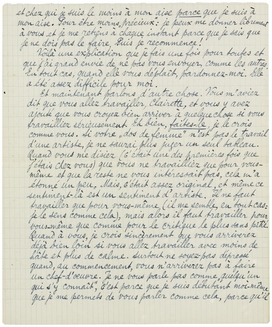 et chez qui je suis le moins à mon aise parce que je suis à
mon aise. Pour être moins précieux : je peux me donner librement
à vous et je me retiens à chaque instant parce que je sais que
je ne dois pas le faire. Puis je recommence !
Voilà une explication que je fais une fois pour toutes et
que j'ai grande envie de ne pas vous envoyer, comme les autres
En tout cas, quand elle vous déplaît, pardonnez-moi. Elle
a été assez difficile pour moi.
Et maintenant parlons d'autre chose. Vous m'aviez
dit que vous allez travailler, Clairette, et vous y avez
ajouté que vous croyez bien arriver à quelque chose si vous
travaillez sérieusement. Eh bien, faites-le, je le crois
comme vous. Si votre „dos de femme" n'est pas le travail
d'un artiste, je ne saurai plus juger un seul tableau.
Quand vous me disiez (c'était une des premières fois que
j'étais chez vous) que vous ne travailliez que pour vous-
même et que le reste ne vous intéressait pas, cela m'a
étonné un peu. Mais, c'était assez original, et même ce
sentiment-là est un sentiment d'artiste. Il ne faut
travailler que pour vous-même (il me semble, en tout cas,
je le sens comme cela), mais alors il faut travailler pour
vous-même comme pour le critique le plus sans pitié.
Quand à vous, je crois sincèrement que vous arriverez
déjà bien loin si vous allez travailler avec moins de
hâte et plus de calme. Surtout ne soyez pas déprimée
quand, au commencement, vous n'arriverez pas à faire
un chef-d'œuvre. Je ne vous parle pas comme quelqu'un
qui s'y connaît. C'est parce que je suis débutant moi-même
que je me permets de vous parler comme cela, parce que